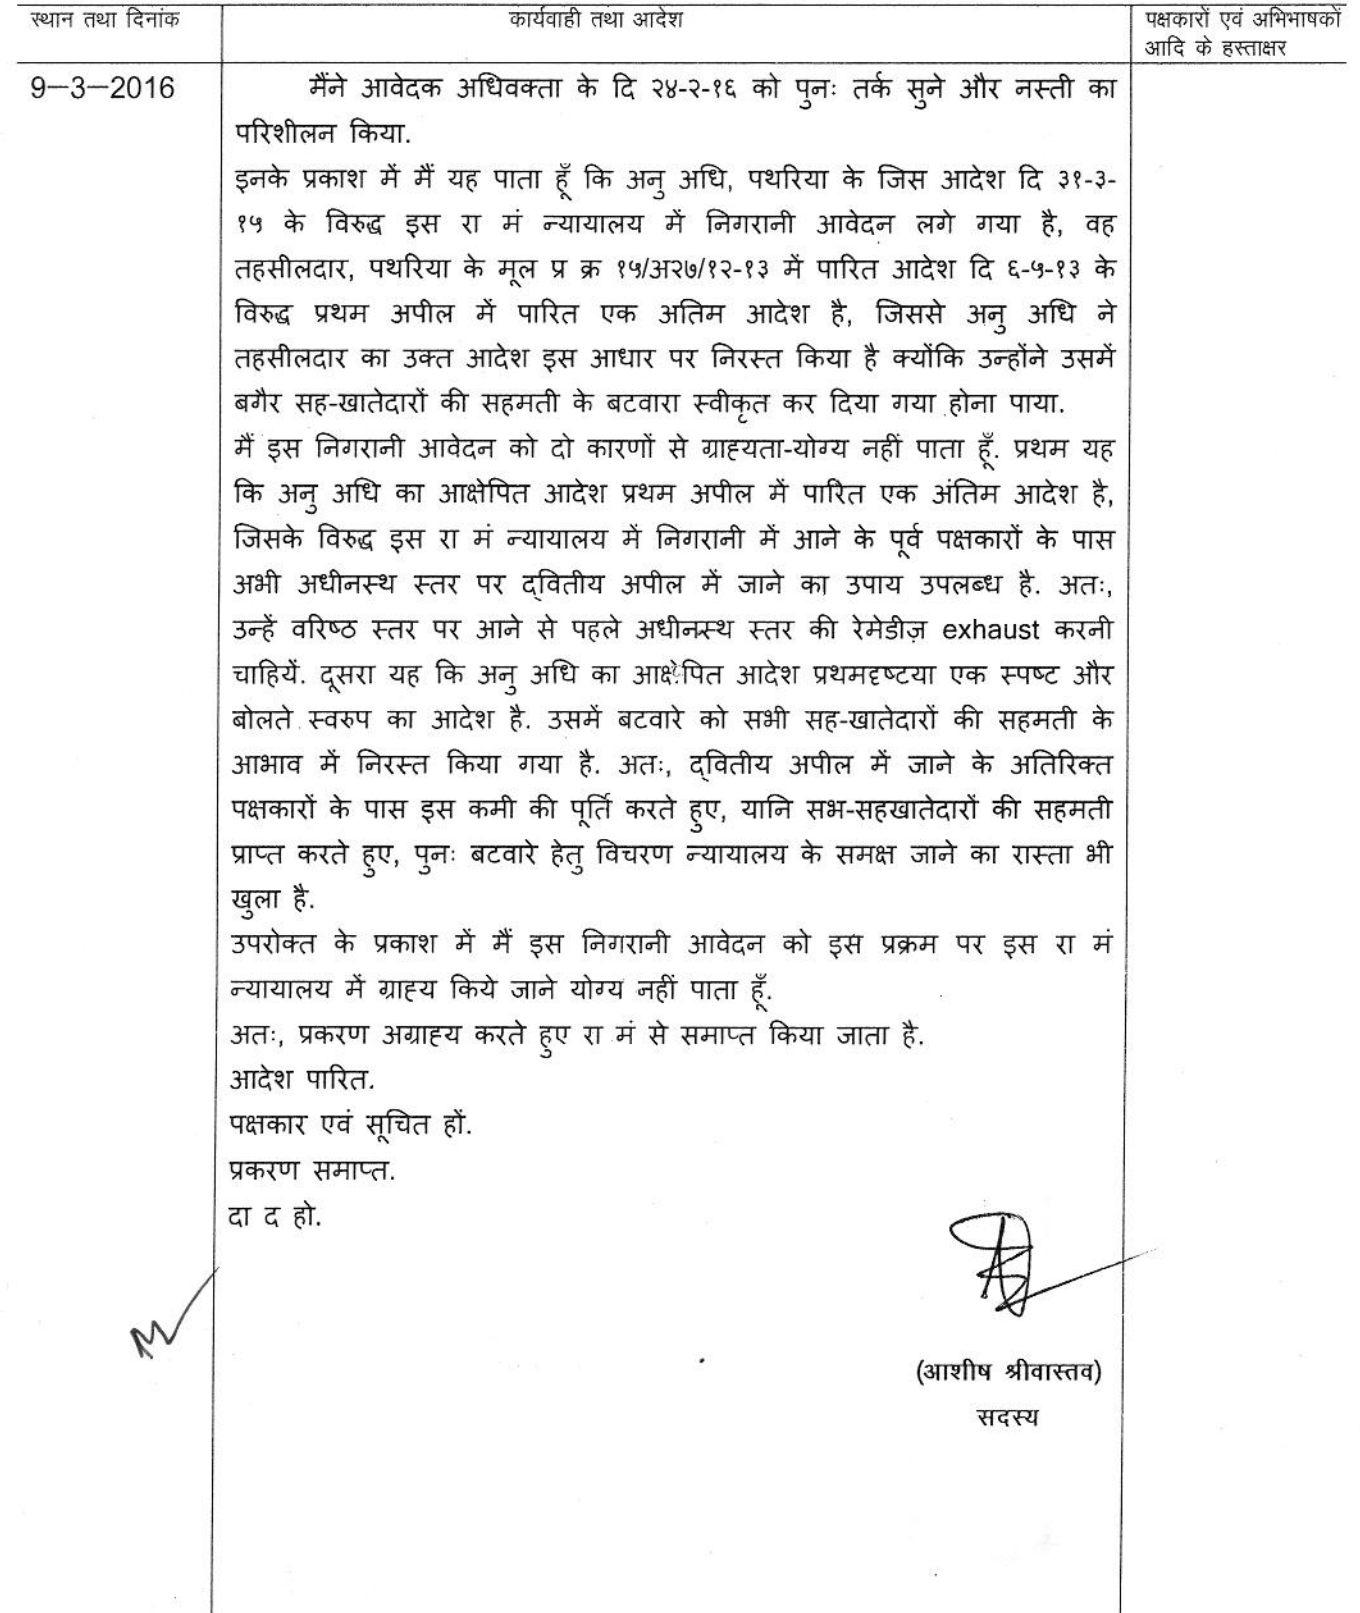 स्थान तथा दिनांक
कार्यवाही तथा आदेश
पक्षकारों एवं अभिभाषकों
आदि के हस्ताक्षर
9-3-2016
मैंने आवेदक अधिवक्ता के दि २४-२-१६ को पुनः तर्क सुने और नस्ती का
परिशीलन किया.
इनके प्रकाश में मैं यह पाता हूँ कि अनु अधि, पथरिया के जिस आदेश दि ३१-३-
१५ के विरुद्ध इस रा मं न्यायालय में निगरानी आवेदन लगे गया है, वह
तहसीलदार, पथरिया के मूल प्र क्र १५/अ२७/१२-१३ में पारित आदेश दि ६-५-१३ के
विरुद्ध प्रथम अपील में पारित एक अतिम आदेश है, जिससे अनु अधि ने
तहसीलदार का उक्त आदेश इस आधार पर निरस्त किया है क्योंकि उन्होंने उसमें
बगैर सह-खातेदारों की सहमती के बटवारा स्वीकृत कर दिया गया होना पाया.
मैं इस निगरानी आवेदन को दो कारणों से ग्राह्यता-योग्य नहीं पाता हूँ. प्रथम यह
कि अनु अधि का आक्षेपित आदेश प्रथम अपील में पारित एक अंतिम आदेश है,
जिसके विरुद्ध इस रा मं न्यायालय में निगरानी में आने के पूर्व पक्षकारों के पास
अभी अधीनस्थ स्तर पर द्वितीय अपील में जाने का उपाय उपलब्ध है. अतः,
उन्हें वरिष्ठ स्तर पर आने से पहले अधीनस्थ स्तर की रेमेडीज़ exhaust करनी
चाहियें. दूसरा यह कि अनु अधि का आक्षेपित आदेश प्रथमदृष्टया एक स्पष्ट और
बोलते स्वरुप का आदेश है. उसमें बटवारे को सभी सह-खातेदारों की सहमती के
आभाव में निरस्त किया गया है. अतः, द्वितीय अपील में जाने के अतिरिक्त
पक्षकारों के पास इस कमी की पूर्ति करते हुए, यानि सभ-सहखातेदारों की सहमती
प्राप्त करते हुए, पुनः बटवारे हेतु विचरण न्यायालय के समक्ष जाने का रास्ता भी
खुला है.
उपरोक्त के प्रकाश में मैं इस निगरानी आवेदन को इस प्रक्रम पर इस रा मं
न्यायालय में ग्राह्य किये जाने योग्य नहीं पाता हूँ.
अतः, प्रकरण अग्राह्य करते हुए रा मं से समाप्त किया जाता है.
आदेश पारित.
पक्षकार एवं सूचित हों.
प्रकरण समाप्त.
दा द हो.
(आशीष श्रीवास्तव)
सदस्य